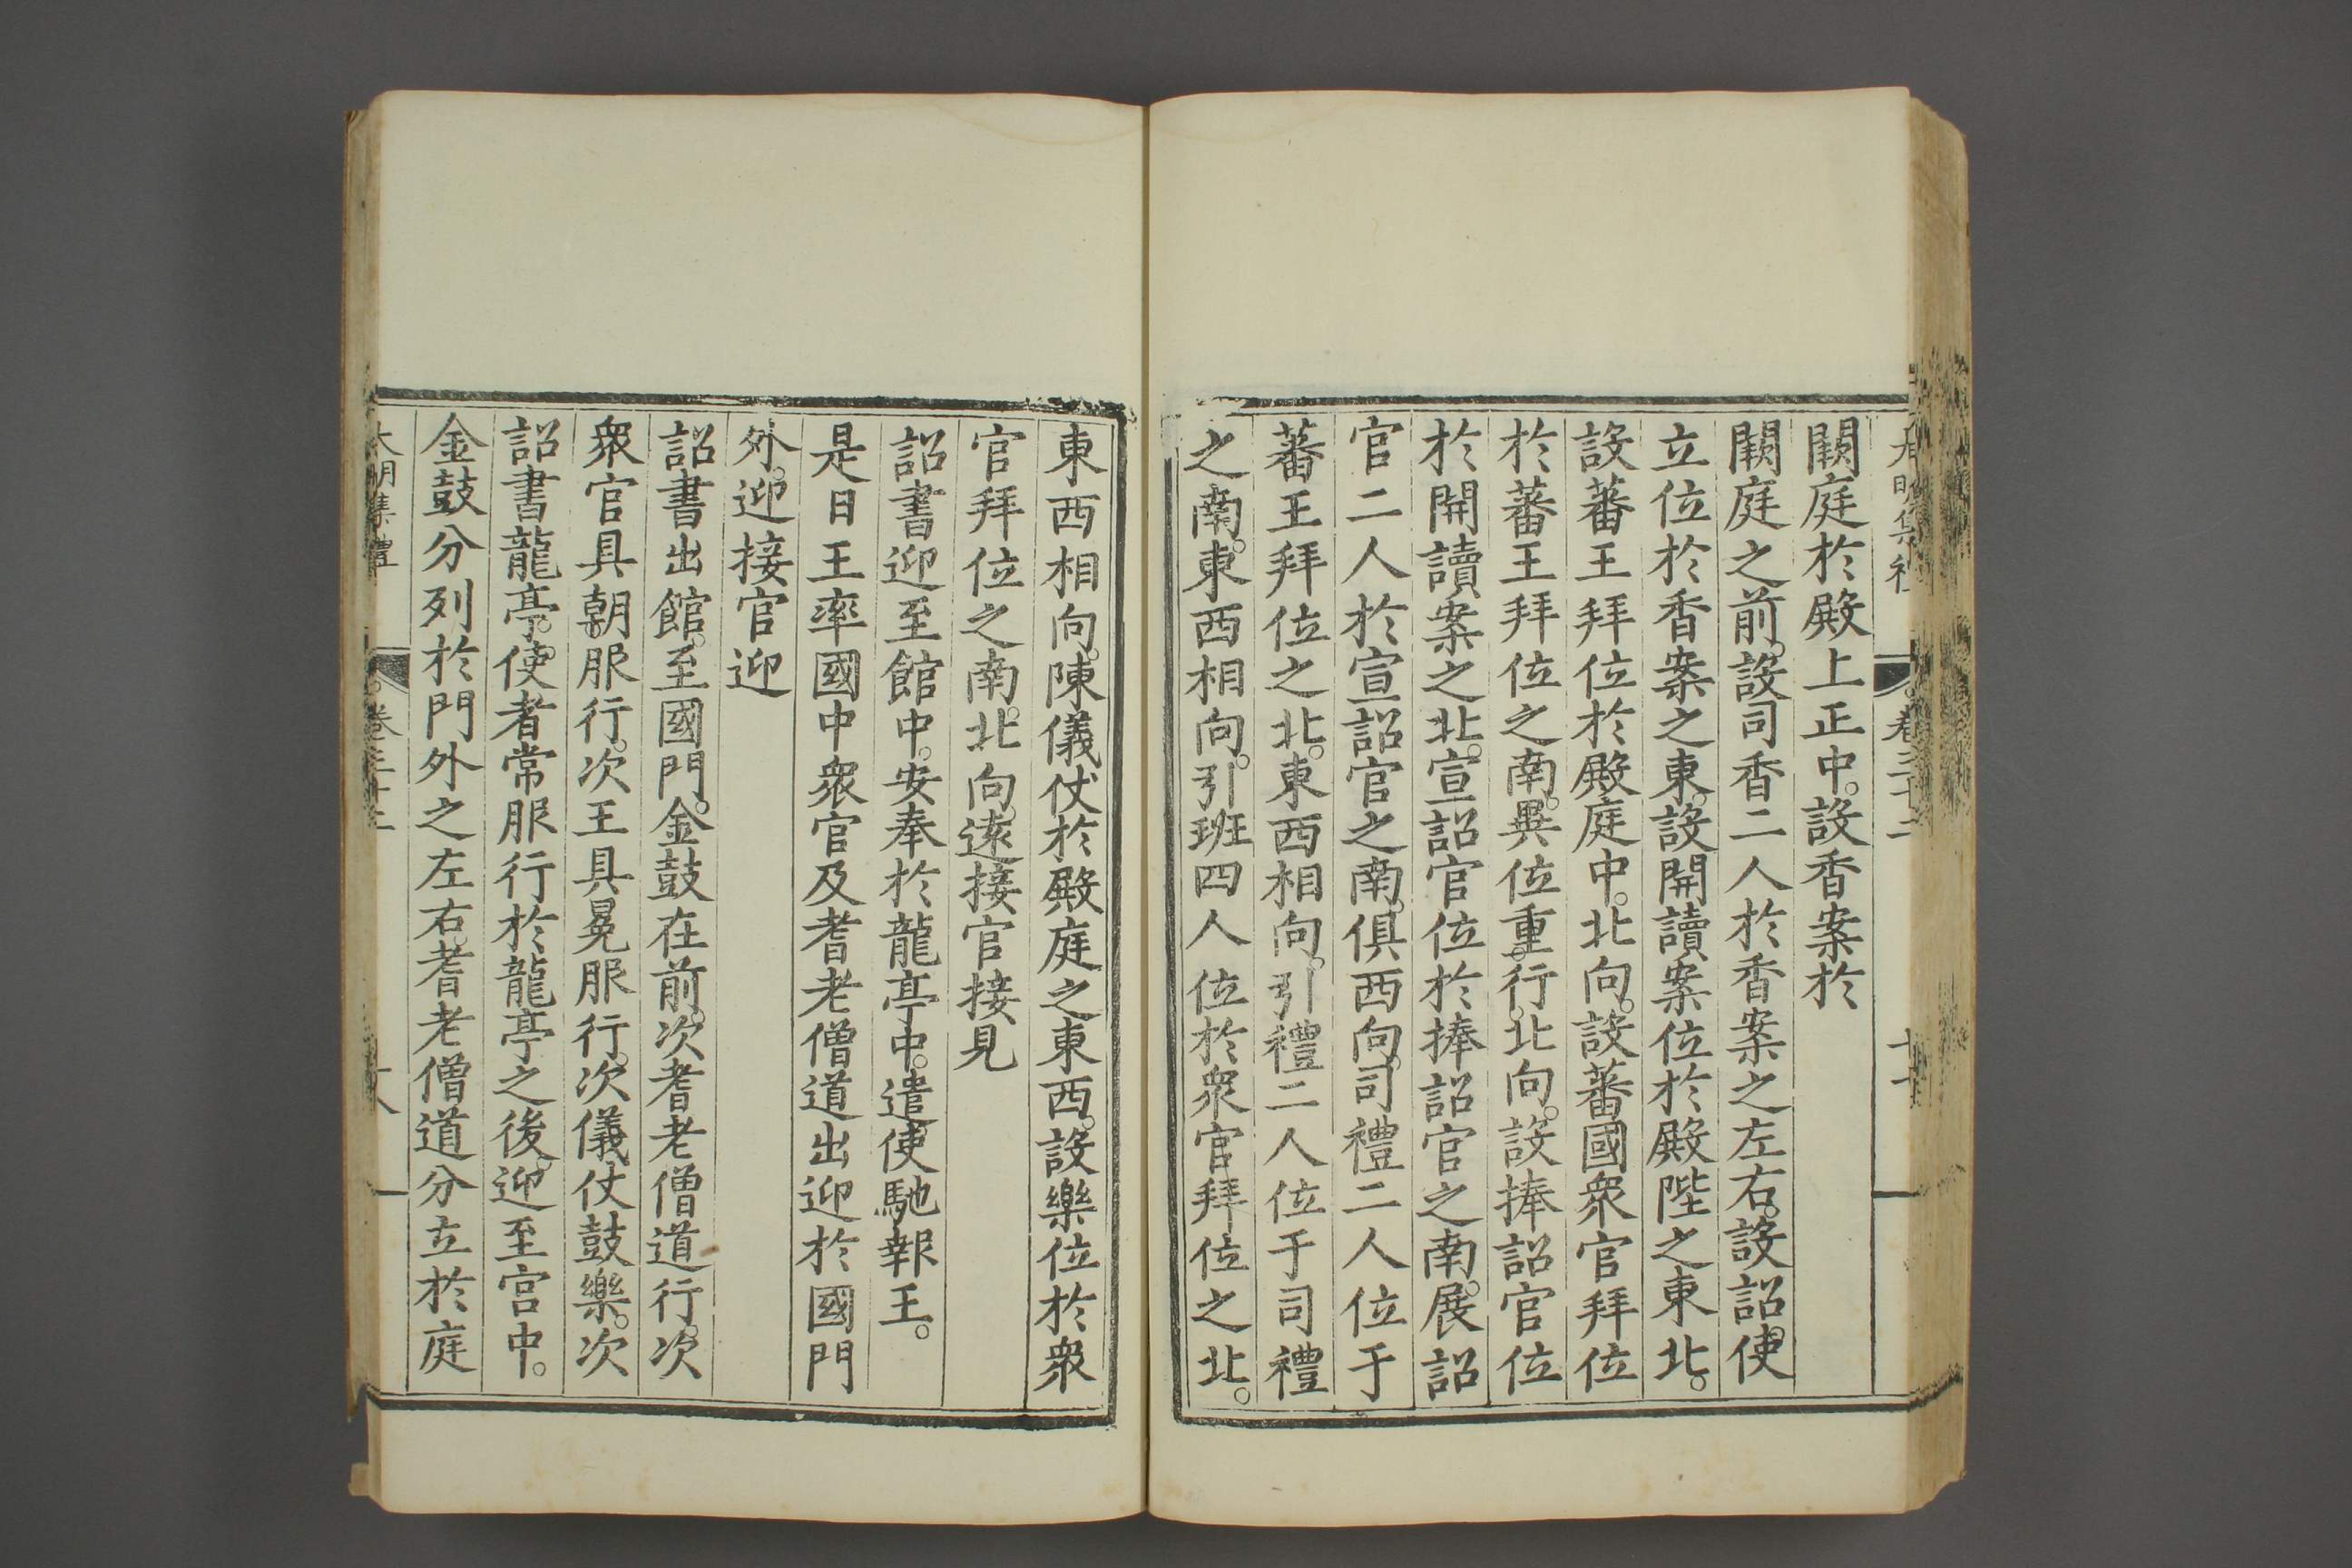 大明集禮 卷三十二 十七
闕庭於殿上正中。設香案於
闕庭之前。設司香二人於香案之左右。設詔使
立位於香案之東。設開讀案位於殿陛之東北。
設蕃王拜位於殿庭中。北向。設蕃國衆官拜位
於蕃王拜位之南。異位重行。北向。設捧詔官位
於開讀案之北。宣詔官位於捧詔官之南。展詔
官二人於宣詔官之南。俱西向。司禮二人位于
蕃王拜位之北。東西相向。引禮二人位于司禮
之南。東西相向。引班四人位於衆官拜位之北。
東西相向。陳儀仗於殿庭之東西。設樂位於衆
官拜位之南。北向。遠接官接見
詔書迎至館中。安奉於龍亭中。遣使馳報王。
是日王率國中衆官及耆老僧道出迎於國門
外。迎接官迎
詔書出館。至國門。金鼓在前。次耆老僧道行。次
衆官具朝服行。次王具冕服行。次儀仗鼓樂。次
詔書龍亭。使者常服行於龍亭之後。迎至宫中。
金鼓分列於門外之左右。耆老僧道分立於庭
大明集禮 卷三十二 十八